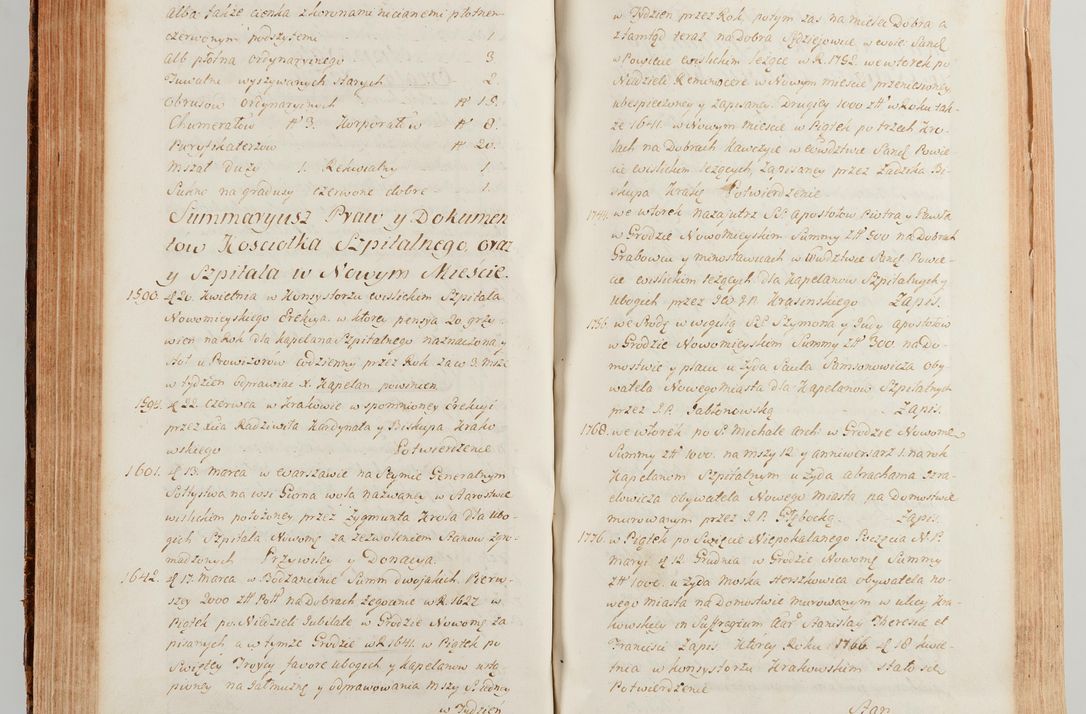 alba także cienka z koronami nicianemi płotnem
czerwonym podszytemi 1
alb płotna ordynaryinego 3
Tuwalni wyszywanych starych 2.
obrusow ordynarinych N 15.
Chumerałow N 3. Korporałow N 8.
Puryfikaterzow N 20.
Mszał Duży 1. Rekwialny 1.
Sukno na gradusy czerwone dobre 1.
Summaryusz Praw y Dokumen
tow Kosciołka Szpitalnego, oraz
y Szpitala w Nowym Mieście.
1590. d 20. Kwietnia w Konsystorzu wislickim Szpitala
Nowomieyskiego Erekcya. w ktorey pensya 20. grzy-
wien na Rok dla Kapelana Szpitalnego naznaczona y
stoł u Prowizorow codzienny przez Rok za co 3. msze
w tydzien odprawiac X. Kapelan powinien.
1594. d 22. czerwca w Krakowie w spomnioney Erekcyi
przez Xcia Radziwiła Kardynała y Biskupa Krako
wskiego Potwierdzenie
1601. d 13. marca w Warszawie na Seymie Generalnym
Sołtystwa na wsi Gorna wola nazwaney w Starostwie
wislickim położoney przez Zygmunta Krola dla ubo-
gich Szpitala Nowome za zezwoleniem Stanow zgro-
madzonych Przywiley y Donacya.
1642. d 17. marca w Bodzancinie Summ dwojakich. Pierw-
szey 2000 złł Poll na Dobrach Zegocinie w R. 1627. w
Piątek po Niedzieli Jubilate w Grodzie Nowome za
pisanych a w tymże Grodzie w R. 1641. w Piątek po
Swiętey Troycy favore ubogich y Kapelanow ustą-
pioney na Jałmużnę y odprawowania mszy S. iedney
w Tydzień
w Tydzien przez Rok, potym zas na mieście Dobra a
ztamtąd teraz na Dobra Sędziejowice w woie: Send
w Powiecie wislickim leżące w R. 1752. we wtorek po
Niedzieli Reminiscere w Nowym mieście przeniesioney,
ubespieczoney y zapisaney. Drugiey 1000 złł w Roku tak-
że 1641. w Nowym Mieście w Piątek po trzech Kro-
lach na Dobrach Kawęczye w wudztwie Send Powie-
cie wislickim leżących, Zapisaney przez Zadzika Bi-
skupa Krakę Potwierdzenie
1744. we wtorek nazajutrz SS. Apostołow Piotra y Pawła
w Grodzie Nowomieyskim Summy złł 500 na Dobrach
Grabowcu y minostawicach w Wudztwie Send Powie-
cie wislickim leżących dla Kapelanow Szpitalnych y
ubogich przez JW J.P. Krasinskiego Zapis.
1756 we Srodę w wigilią SS. Szymona y Judy Apostołow
w Grodzie Nowomieyskim Summy złł 300 na Do-
mostwie y placu u Zyda Saula Samsonowicza oby-
watela Nowego miasta dla Kapelanow Szpitalnych
przez J.P. Jabłonowską Zapis.
1768. we wtorek po S. Michale Arch. w Grodzie Nowome
Summy złł 1000. na mszy 12. y anniwersarz 1. na rok
Kapelanom Szpitalnym u Zyda abrachama Izra-
elowicza obywatela Nowego miasta na Domostwie
murowanym przez J.P. Głębocką. Zapis.
1776. w Piątek po Święcie Niepokalanego Poczęcia N.P.
maryi d 12. Grudnia w Grodzie Nowome Summy
złł 1000. u Zyda Moska Herszkowica obywatela no-
wego miasta na Domostwie murowanym w ulicy Kra-
kowskiey in Suffragium aar Stanislay Theresiæ et
Francisci Zapis. Ktorey Roku 1766. d 18 kwie-
tnia w konsystorzu Krakowskim stało się
Potwierdzenie